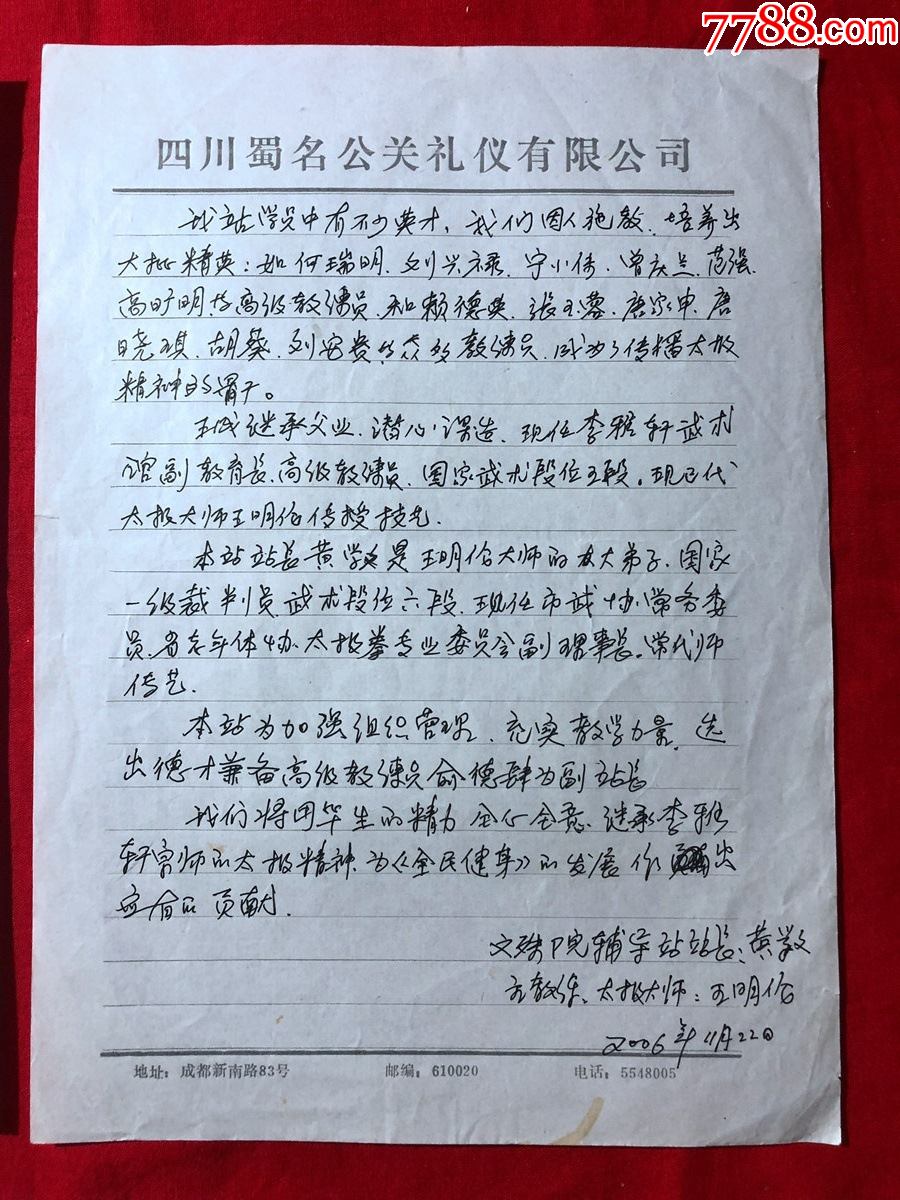 7788.com
四川蜀名公关礼仪有限公司
我站学员中有不少英才，我们因人施教，培养出
大批精英：如何瑞明、刘兴禄、宁小伟、曾庆兰、范强、
高旷明等高级教练员，和赖德英、张玉蓉、唐家申、唐
晓琪、胡葵、列安贵等众多教练员，成为了传播太极
精神的骨干。
王成继承父业，潜心深造，现任李雅轩武术
馆副教育长、高级教练员，国家武术段位五段。现已代
太极大师王明伦传授技艺.
本站站长黄学 是王明伦大师的 大弟子，国家
一级裁判员，武术段位六段，现任市武协常务委
员，省老年体协太极拳专业委员会副理事长。常代师
传艺.
本站为加强组织管理，充实教学力量，选
出德才兼备高级教练员俞德肆为副站长
我们将用毕生的精力全心全意，继承李雅
轩宗师的太极精神，为《全民健身》的发展作 出
应有的贡献.
文殊院辅导站站长：黄学
主教练、太极大师：王明伦
2006年11月22日
地址：成都新南路83号 邮编：610020 电话：5548005